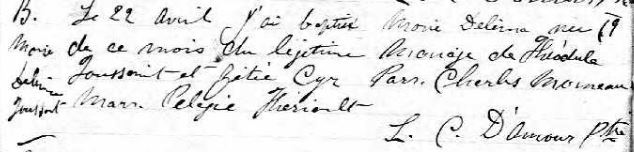 B. Le 22 Avril j'ai baptisé Marie Delima née 19
Marie de ce mois du légitime Mariage de Théodule
Delima Toussaint et Cyr Parr. Charles Morneau
Toussaint Marr. Pelagie Theriault
L. C. D'Amour Ptre